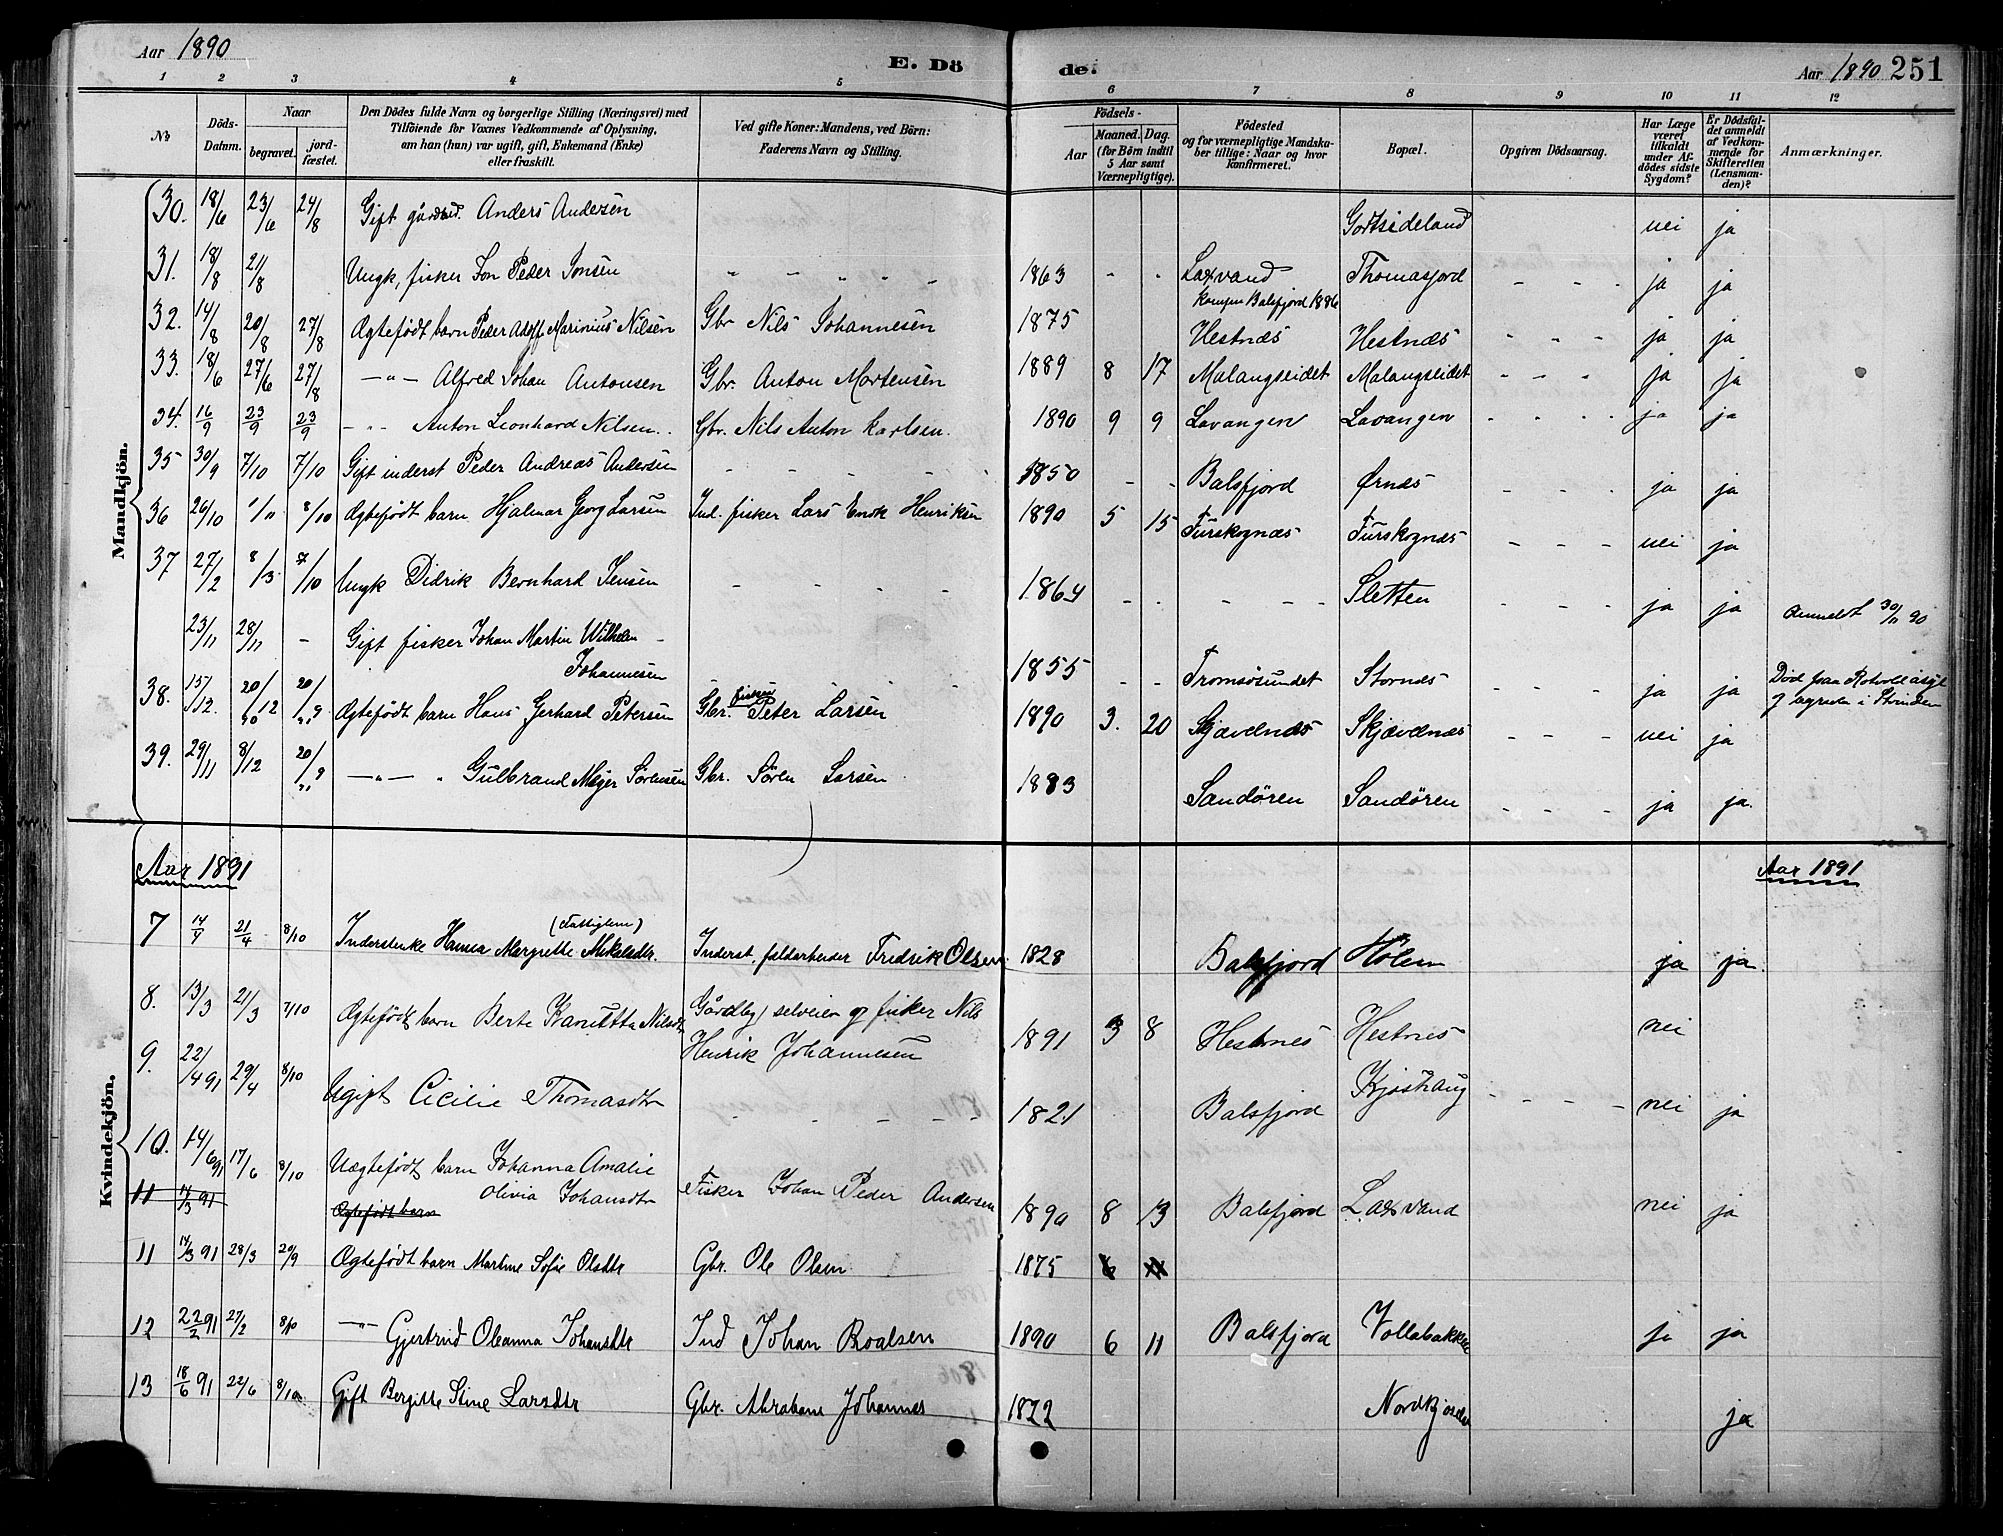 Aar 1890
E. Dö
de.
Aar 1890 251
1 2 3 4 5 6 7 8 9 10 11 12
No
Döds-Datum.
Naar
begravet.
jord-fæstet.
Den Dödes fulde Navn og borgerlige Stilling (Næringsvei) med
Tilföiende for Voxnes Vedkommende af Oplysning,
om han (hun) var ugift, gift, Enkemand (Enke)
eller fraskilt.
Ved gifte Koner: Mandens, ved Börn:
Faderens Navn og Stilling.
Födsels-
Aar
Maaned. Dag.
(for Börn indtil
5 Aar samt
Værnepligtige).
Födested
og for værnepligtige Mandska-
ber tillige: Naar og hvor
konfirmeret.
Bopæl.
Opgiven Dödsaarsag.
Har Læge
været
tilkaldt
under Af-
dödes sidste
Sygdom?
Er Dödsfal-
det anmeldt
af Vedkom-
mende for
Skifteretten
(Lensman-
den)?
Anmærkninger.
Mandkjön.
30. 18/6 23/6 24/8 Gift Anders Andersen Gortsideland nei ja
31. 18/8 21/8 Ungk, fisker Peder Jonsen " " " " " 1863 " " Laxvand Thomasjord - - - ja ja
Balsfjord 1886
32. 14/8 20/8 27/8 Ægtefödt barn Peder Adolf Marinius Nilsen Gbr Nils Johannesen 1875 Hestnæs Hestnæs - - - ja ja
33. 18/6 27/6 27/8 —"— Alfred Johan Antonsen Gbr. Anton Mortensen 1889 8 17 Malangseidet Malangseidet - - - ja ja
34. 16/9 23/9 23/9 - " - Anton Leonhard Nilsen. Gbr. Nils Anton Karlsen. 1890 9 9 Lavangen Lavangen " " " " ja ja
35 30/9 7/10 7/10 Gift inderst Peder Andreas Andersen - - - 1850 - - Balsfjord Ørnæs - - - ja ja
36 26/10 1/11 8/10 Ægtefödt barn Hjalmar Georg Larsen Ind. fisker Lars Enok Henriksen 1890 5 15 Furskognæs Furskognæs - - - nei ja
37 27/2 8/3 7/10 Ungk Didrik Bernhard Jensen - - - - 1864 - - - - - Sletten - - - ja ja
23/11 28/11 - Gift fisker Johan Martin Wilhelm - Anmeldt 30/11 90
Johannesen - - - - 1855 - - Tromsøsundet Stornæs - - - ja ja
38. 15/12. 20/12 Ægtefödt barn Hans Gerhard Petersen Gbr. fisker Peter Larsen 1890 3. 20 Skjævelnæs Skjævelnæs - - - nei ja Død paa Rotvold asyl
39. 29/11 8/12 —"— " Gulbrand Meyer Sørensen Gbr. Søren Larsen 1883 Sandøren Sandøren - - - ja ja.
Aar 1891
Aar 1891
Kvindekjön.
7 14/4 21/4 8/10 Hanna Margrethe Mikalsdtr. Inderst. Fredrik Olsen 1828 Balsfjord Hölen ja ja.
8. 13/3 21/3 7/10 Ægtefödt barn Berte Nilsdtr selveier og fisker Nils
Henrik Johannesen 1891 3 8 Hestnes Hestnes nei
9. 22/4 91 29/4 8/10 Ugift Cicilie Thomasdtr - - - - 1821 Balsfjord Kjøshaug - - - - nei ja
10. 14/6 91 17/6 8/10 Uægtefödt barn Johanna Amalie
Olivia Johansdtr Fisker Johan Peder Andersen 1890 8 13 Balsfjord Laxvand nei ja
11 14/3 91 Ægtefödt barn
11 14/3 91 28/3 20/9 Ægtefödt barn Martine Sofie Olsdtr Gbr. Ole Olsen 1875 6
12 22/2 91 27/2 8/10 —"— Gjertrud Oleanna Johansdtr Ind Johan Roalsen 1890 6 11 Balsfjord Vollabakken ja ja
13 18/6 91 22/6 8/10 Gift Bergitte Stine Larsdtr Gbr. Abraham Johannes 1822 ja